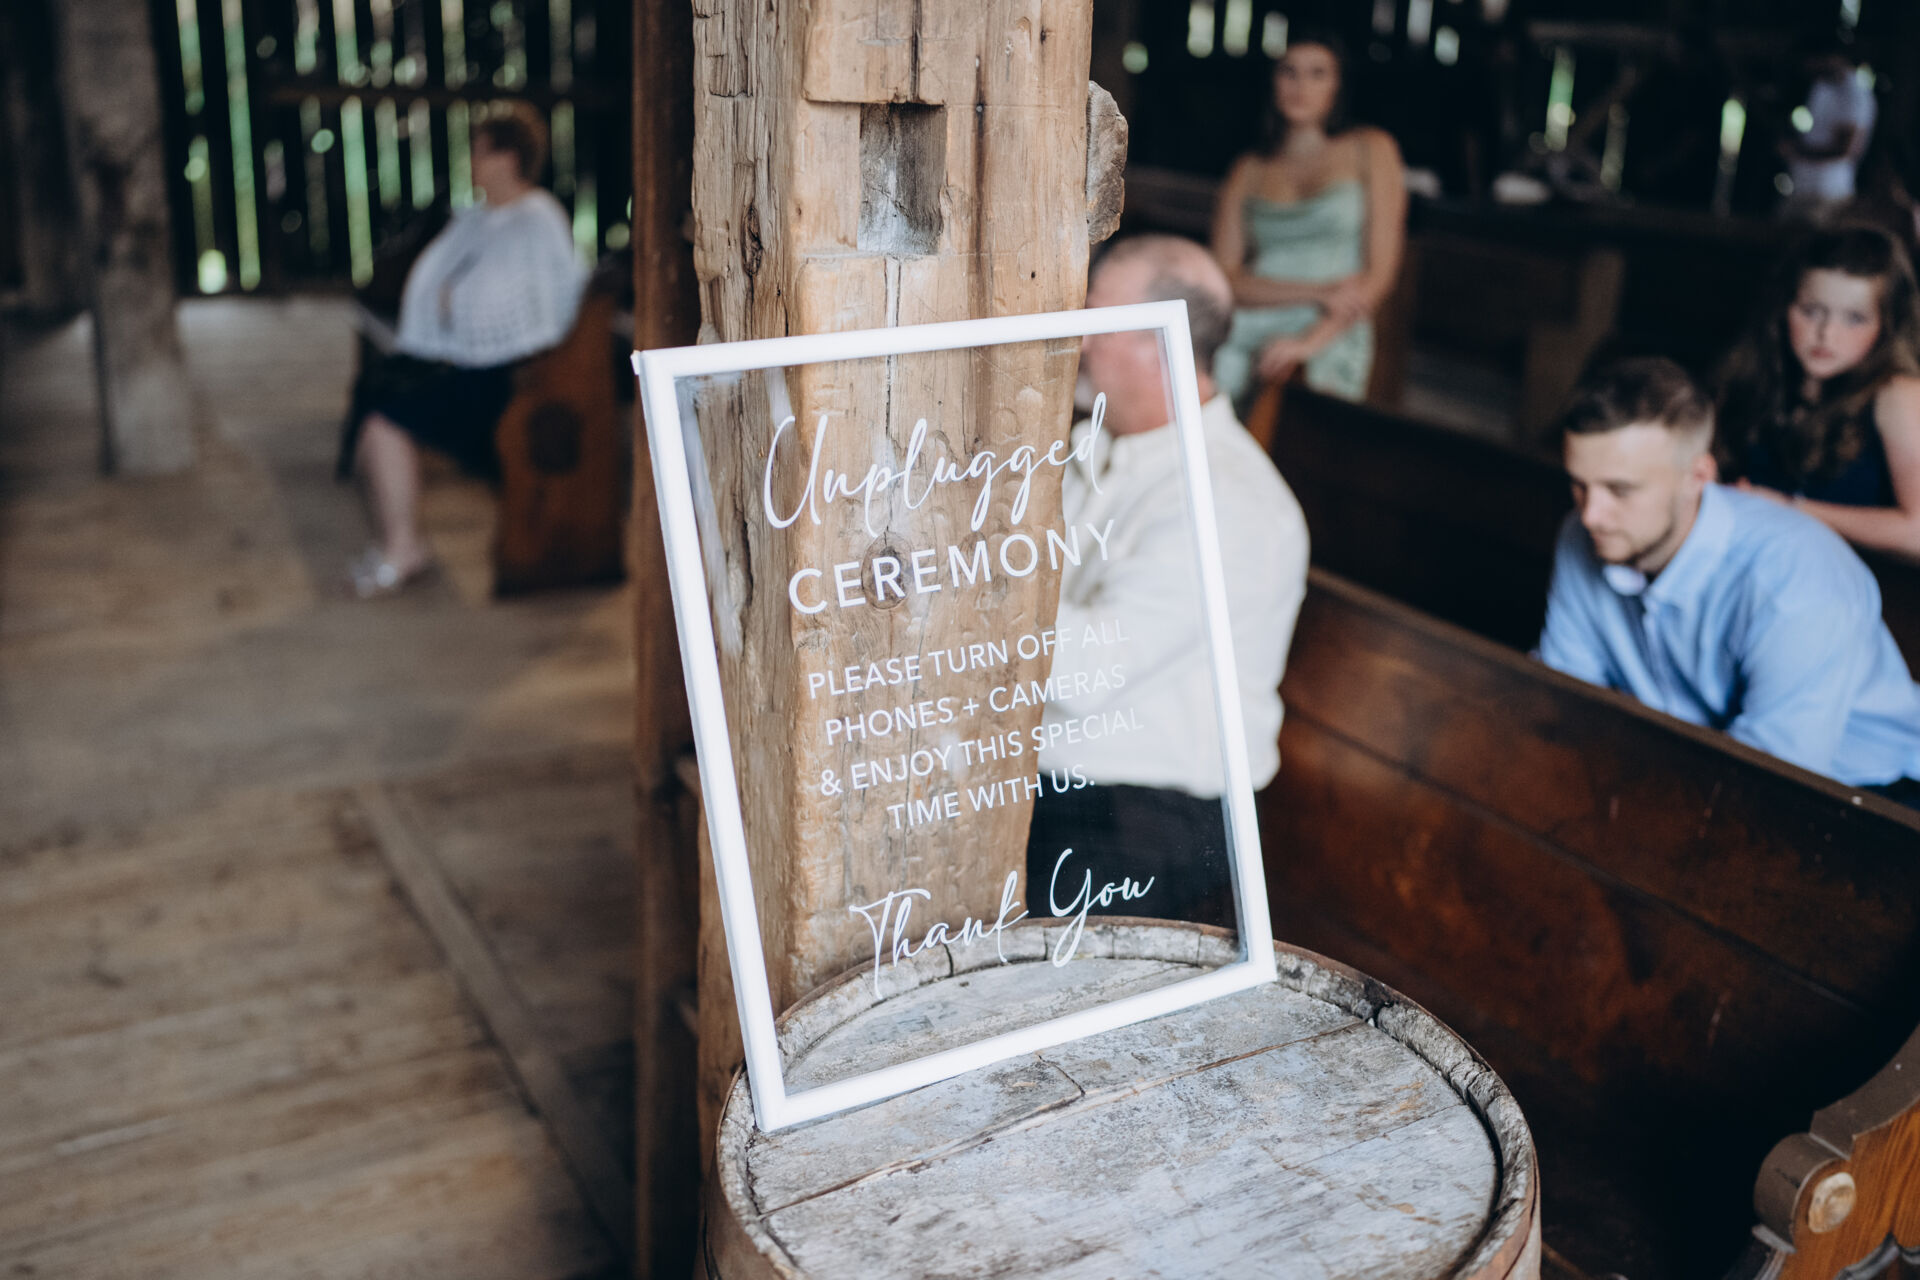 Unplugged
CEREMONY
PLEASE TURN OFF ALL
PHONES + CAMERAS
& ENJOY THIS SPECIAL
TIME WITH US.
Thank You